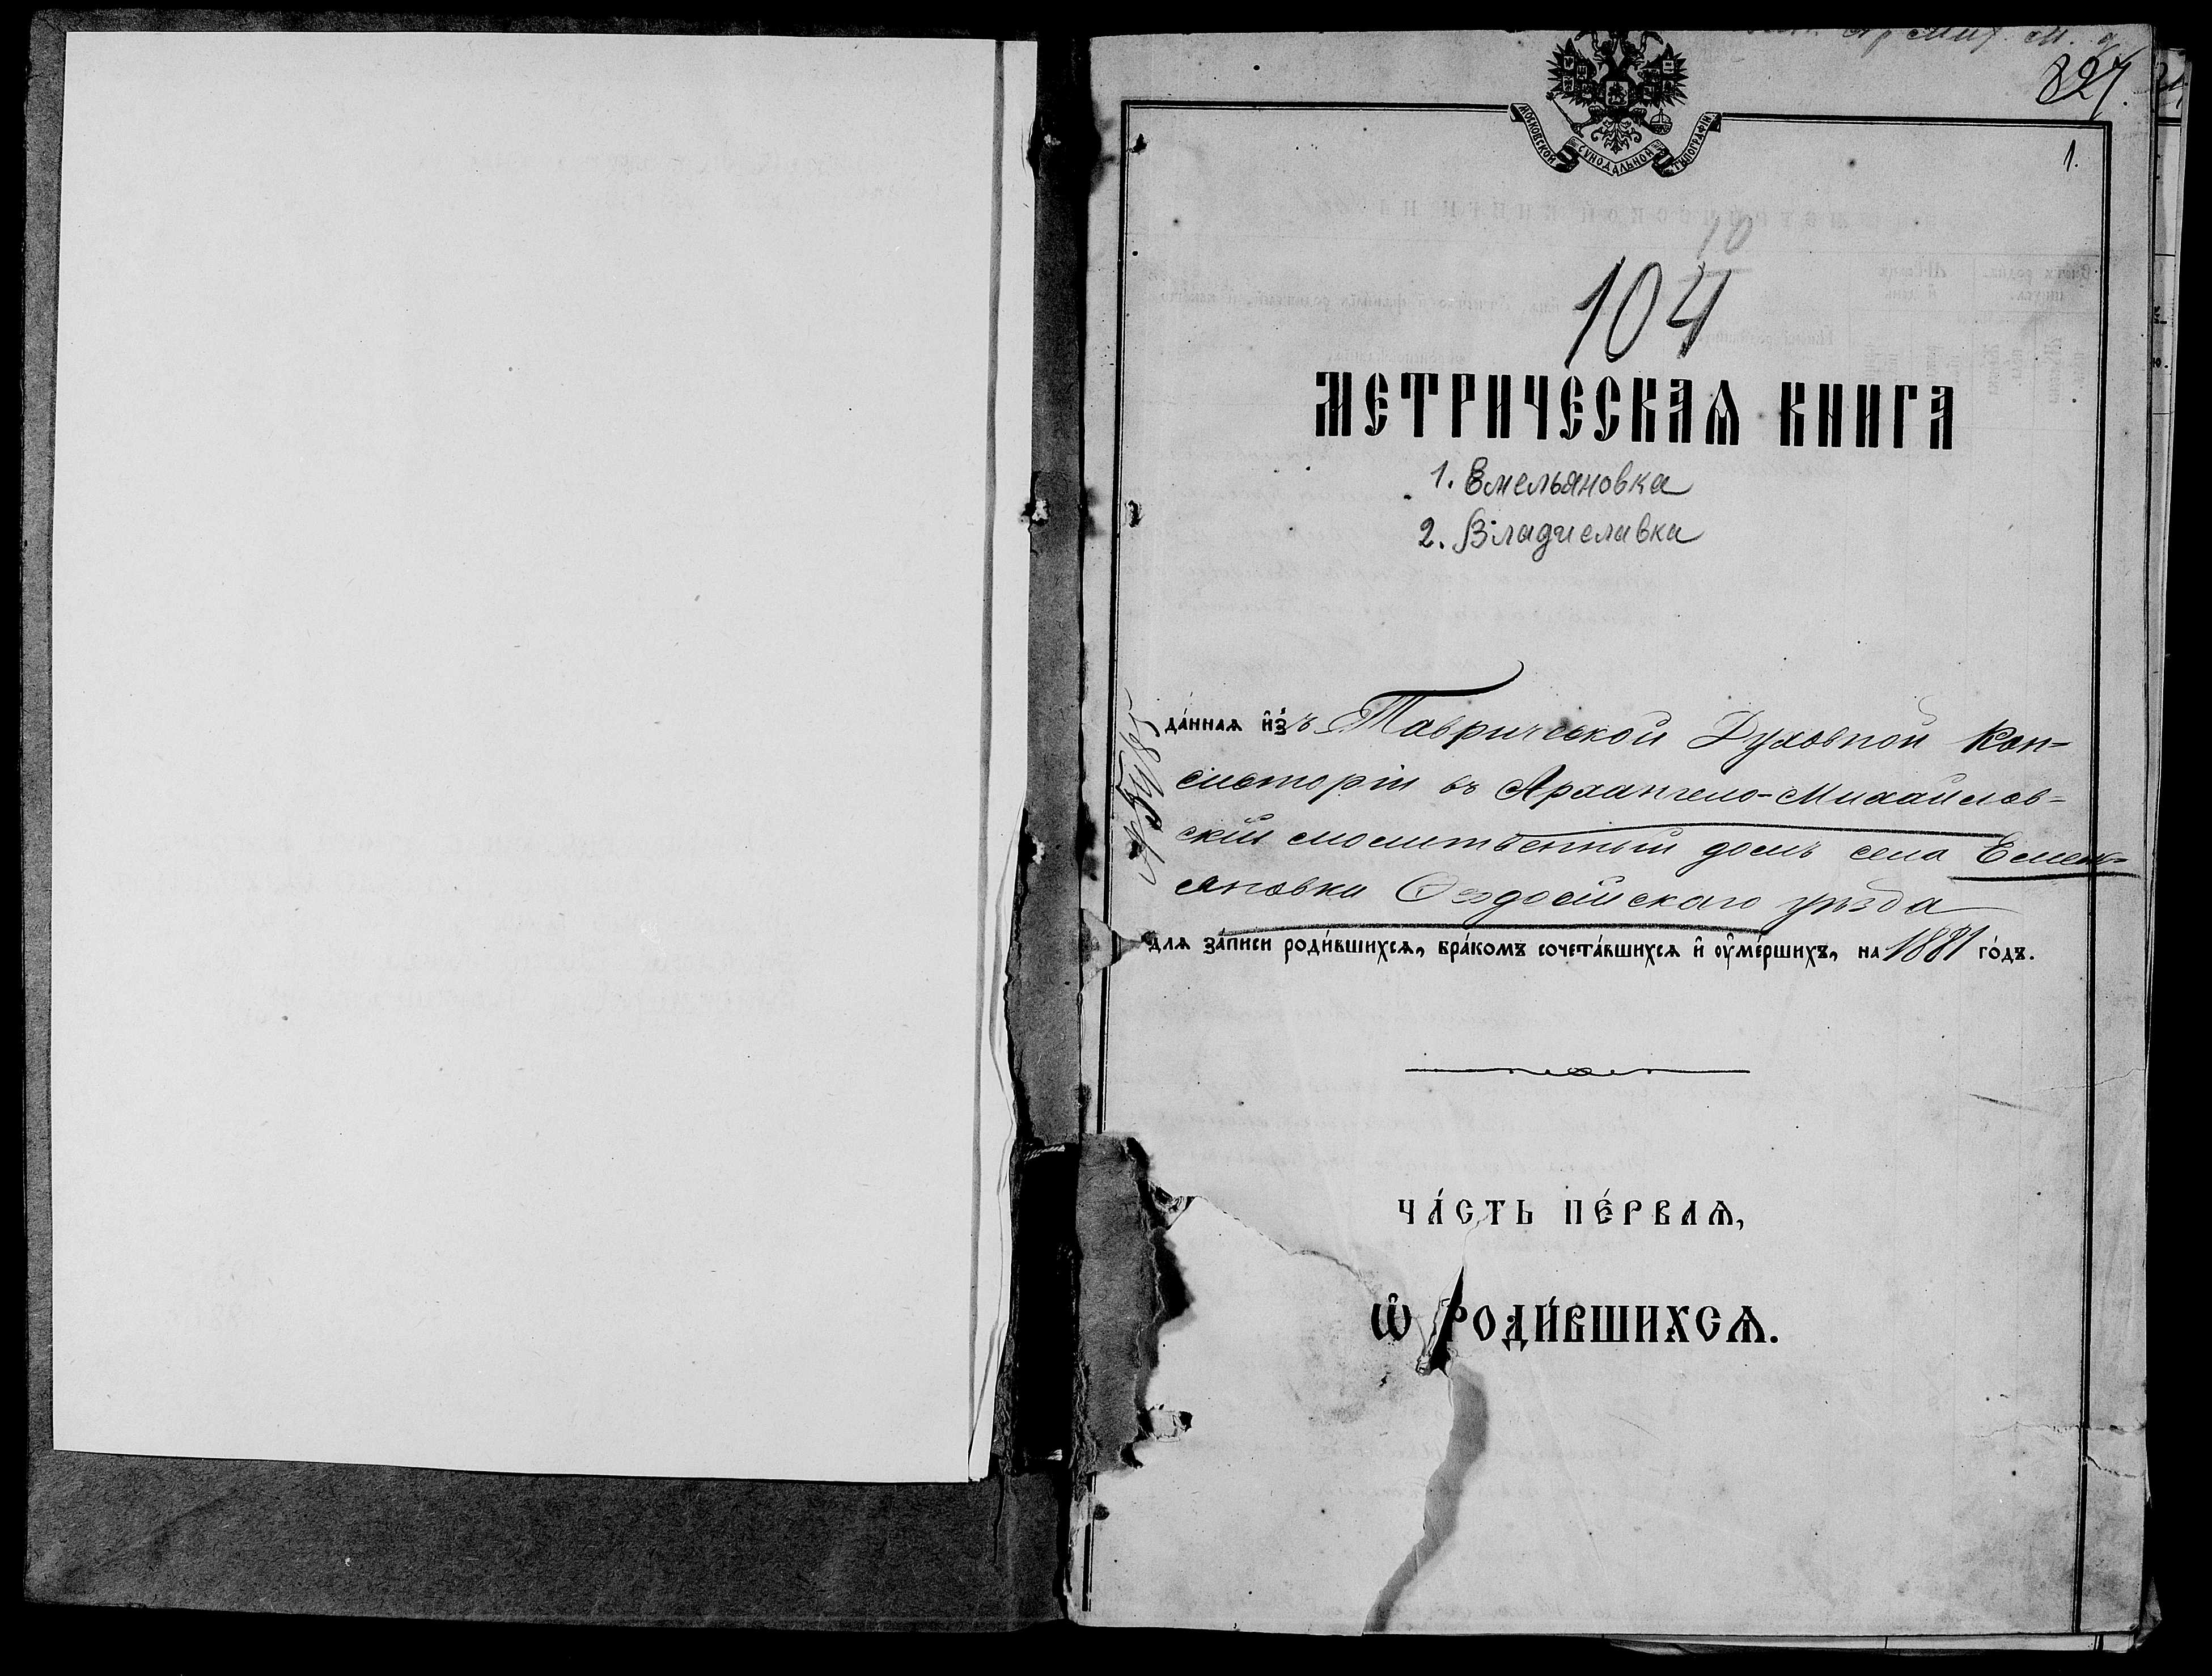 Арх Мих. м. д.
827.
МОСКОВСКОЙ СѴНОДАЛЬНОЙ ТИПОГРАФІИ
1.
10
104
МЕТРИЧЕСКАѦ КНИГА
1. Емельяновка
2. Владиславка
да́ннаѧ и҆́зъ Таврической Духовной Кон=
систоріи въ Архангело-Михайлов=
скій молитвенный домъ села Емель=
яновки Ѳеодосійскаго уѣзда
длѧ за́писи роди́вшихсѧ, бра́комъ сочета́вшихсѧ и҆ ᲂу҆ме́ршихъ, на 1881 го́дъ.
ЧА́СТЬ ПЕ́РВАѦ,
Ѡ҆ РОДИ́ВШИХСѦ.